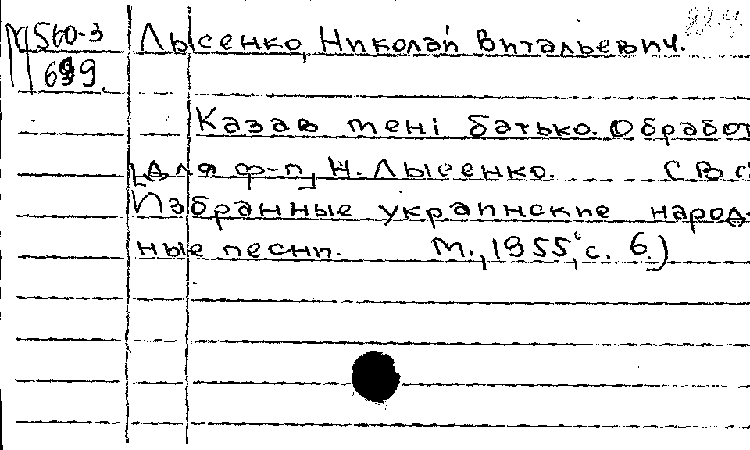 М560-3 Лысенко, Николай Витальевич.
699
Казав мені батько. Обработ
[для ф-п] Н. Лысенко. (В сб
Избранные украинские народ-
ные песни. М., 1955, с. 6.)